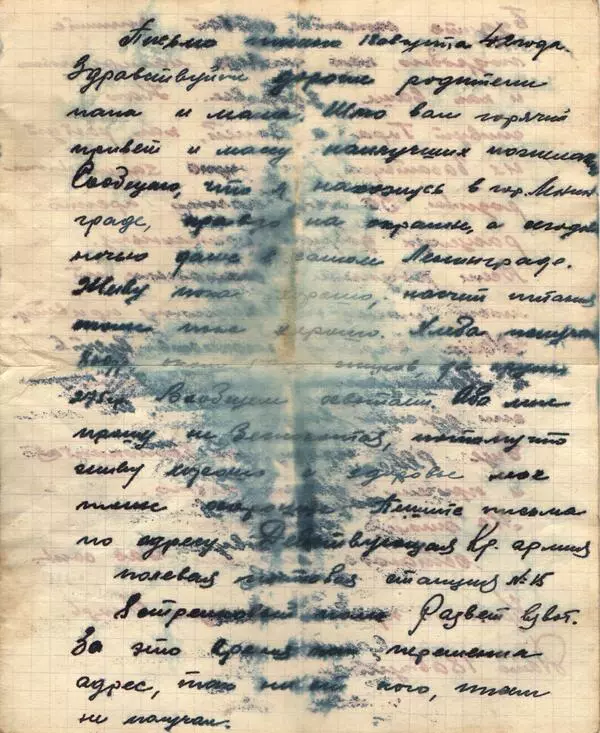 Письмо писано 18 августа 41 года.
Здравствуйте дорогие родители
папа и мама. Шлю вам горячий
привет и массу наилучших пожелан
Сообщаю, что я нахожусь в гор. Ленин
граде, правда на окраине, а сегодня
ночью даже в самом Ленинграде.
Живу пока хорошо, насчит питания
тоже пока хорошо. Хлеба
275 гр Вообщем хватает. Обо мне
прошу не беспокоится, потомучто
живу хорошо и здоровье мое
тоже хорошее Пишите письма
по адресу Действующая Кр. армия
полевая почтовая станция № 15
Стрелковый полк Развет взвот.
За это время
адрес, так ни от кого, писем
не получал.